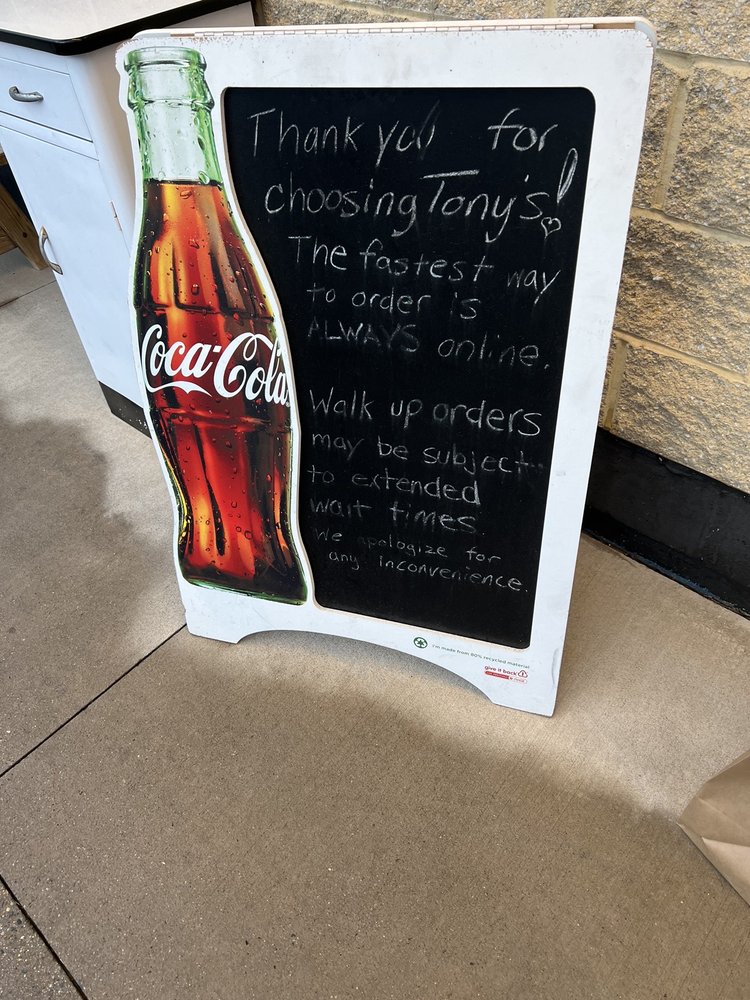 Thank you for
choosing Tony's!
The fastest way
to order is
ALWAYS online.
Walk up orders
may be subject
to extended
wait times.
We apologize for
any inconvenience.
Coca-Cola
I'm made from 80% recycled material
give it back